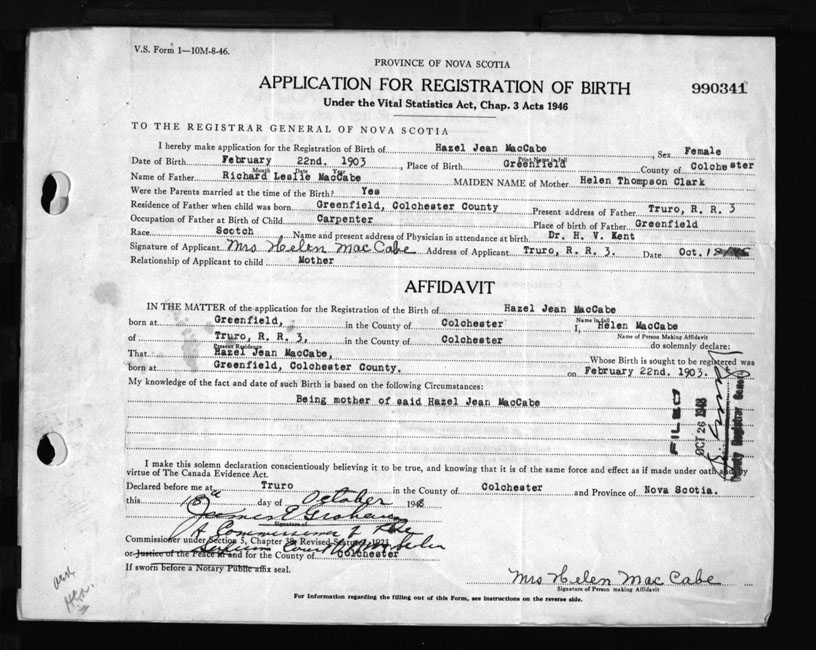 V.S. Form 1—10M-8-46.
PROVINCE OF NOVA SCOTIA
APPLICATION FOR REGISTRATION OF BIRTH 990341
Under the Vital Statistics Act, Chap. 3 Acts 1946
TO THE REGISTRAR GENERAL OF NOVA SCOTIA
I hereby make application for the Registration of Birth of Hazel Jean MacCabe, Sex Female
Print Name in full
Date of Birth February 22nd. 1903, Place of Birth Greenfield County of Colchester
Month Date Year
Name of Father Richard Leslie MacCabe MAIDEN NAME of Mother Helen Thompson Clark
Were the Parents married at the time of the Birth? Yes
Residence of Father when child was born. Greenfield, Colchester County Present address of Father Truro, R. R. 3
Occupation of Father at Birth of Child Carpenter Place of birth of Father Greenfield
Race Scotch Name and present address of Physician in attendance at birth Dr. H. V. Kent
Signature of Applicant Mrs Helen MacCabe Address of Applicant Truro, R. R. 3. Date Oct.
Relationship of Applicant to child Mother
AFFIDAVIT
IN THE MATTER of the application for the Registration of the Birth of Hazel Jean MacCabe
Name in full
born at Greenfield, in the County of Colchester I, Helen MacCabe
Name of Person Making Affidavit
of Truro, R. R. 3, in the County of Colchester do solemnly declare:
Present Residence
That Hazel Jean MacCabe, Whose Birth is sought to be registered was
born at Greenfield, Colchester County. on February 22nd. 1903.
My knowledge of the fact and date of such Birth is based on the following Circumstances:
Being mother of said Hazel Jean MacCabe
FILED
OCT 26 1948
Deputy Registrar General
I make this solemn declaration conscientiously believing it to be true, and knowing that it is of the same force and effect as if made under oath and by
virtue of The Canada Evidence Act.
Declared before me at Truro in the County of Colchester and Province of Nova Scotia.
this 18th day of October 1948
James E Graham
Signature of
A Commissioner of the
Commissioner under Section 5, Chapter 38, Revised Statutes, 1923
Supreme Court
or Justice of the Peace in and for the County of Colchester
If sworn before a Notary Public affix seal.
Mrs Helen MacCabe
Signature of Person making Affidavit
For Information regarding the filling out of this Form, see instructions on the reverse side.